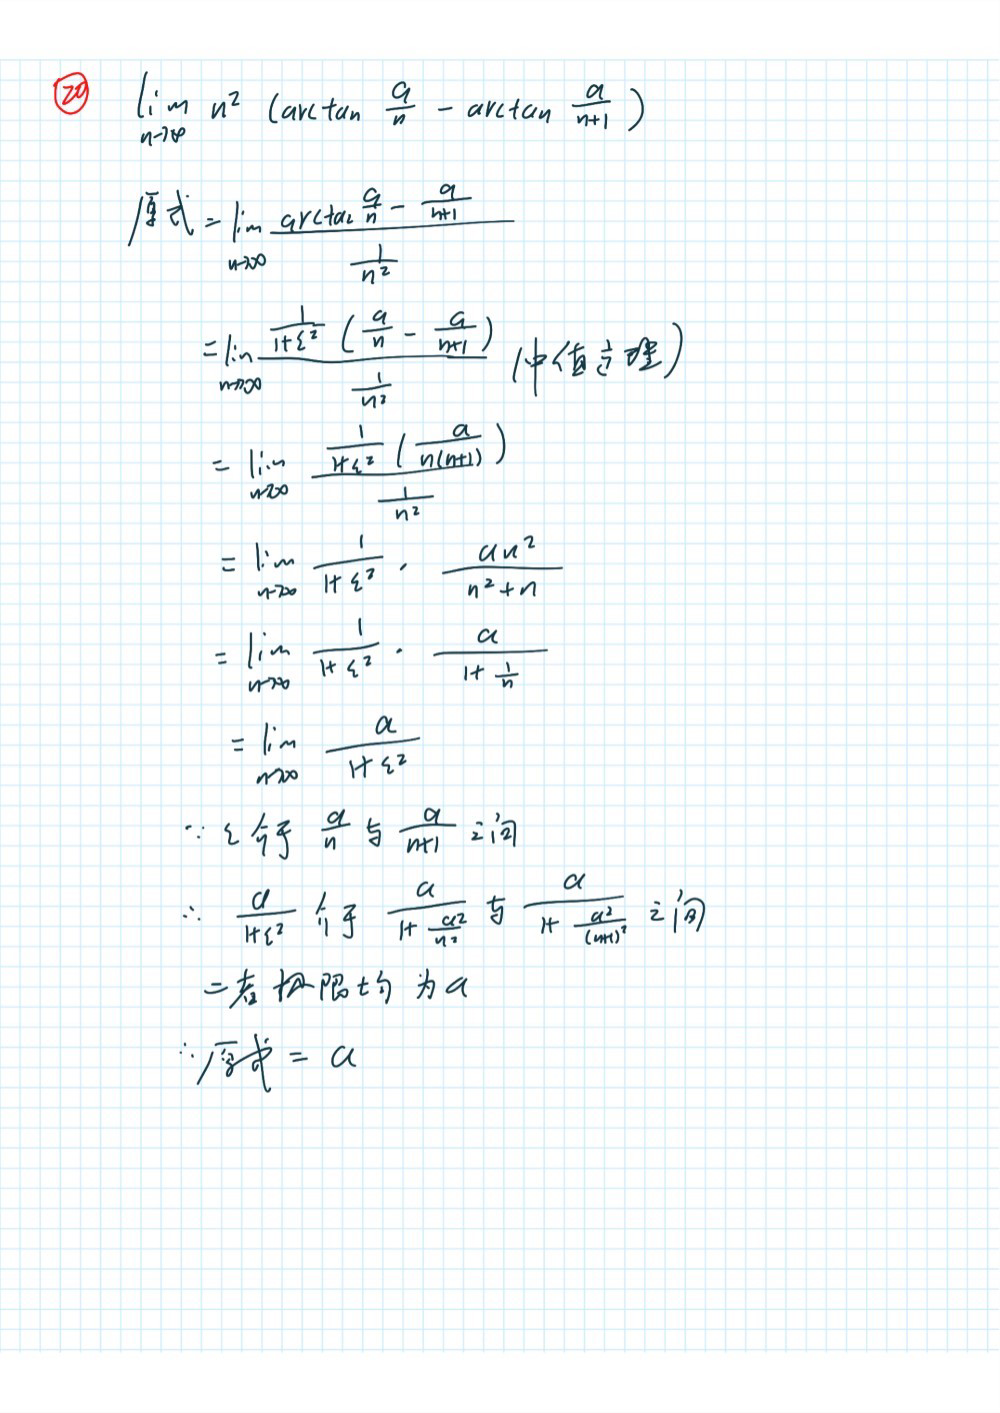 20 lim n→∞ n² (arctan a/n − arctan a/(n+1))
原式 = lim n→∞ (arctan a/n − a/(n+1)) / (1/n²)
= lim n→∞ (1/(1+ξ²) (a/n − a/(n+1))) / (1/n²) (中值定理)
= lim n→∞ (1/(1+ξ²) (a/(n(n+1)))) / (1/n²)
= lim n→∞ 1/(1+ξ²) · an²/(n²+n)
= lim n→∞ 1/(1+ξ²) · a/(1+1/n)
= lim n→∞ a/(1+ξ²)
∵ ξ介于 a/n 与 a/(n+1) 之间
∴ a/(1+ξ²) 介于 a/(1+a²/n²) 与 a/(1+a²/(n+1)²) 之间
二者极限均为a
∴原式 = a